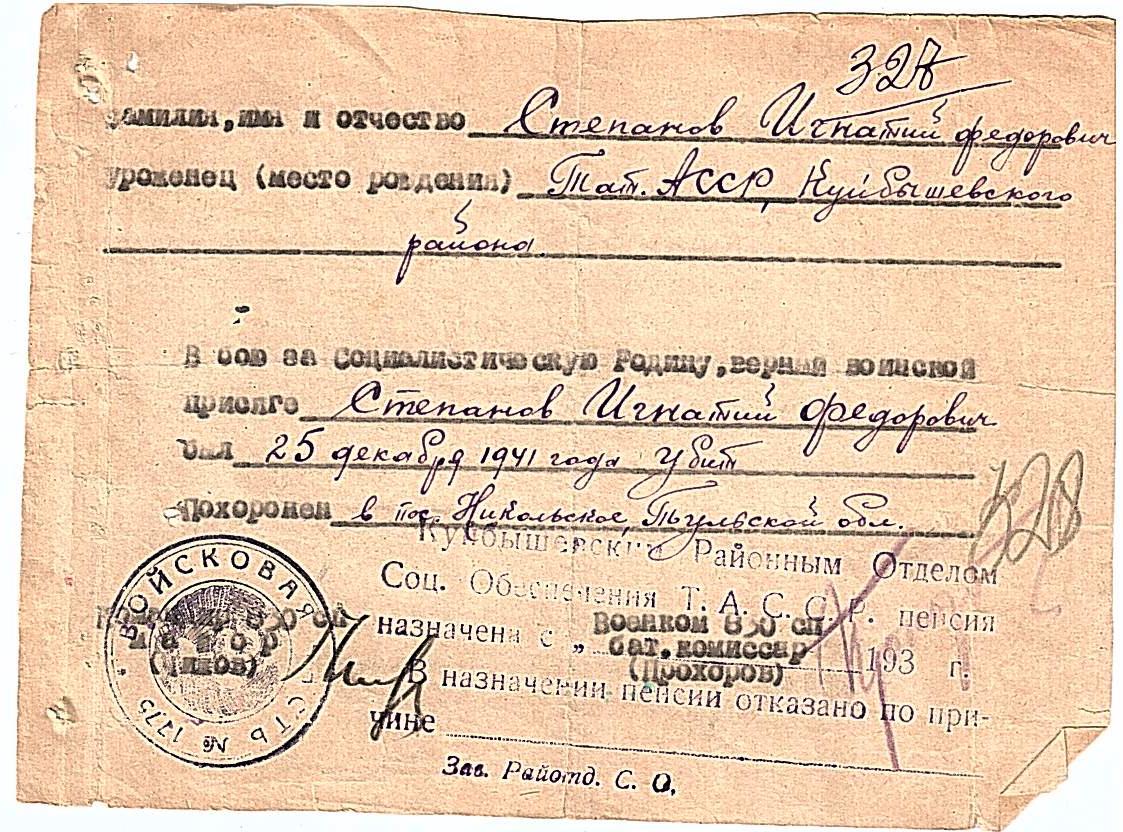 328
фамилия, имя и отчество Степанов Игнатий Федорович
уроженец (место рождения) Тат. АССР, Куйбышевского
района.
В бою за Социалистическую Родину, верный воинской
присяге Степанов Игнатий Федорович
был 25 декабря 1941 года убит
Похоронен в пос. Никольское, Тульской обл.
328
Куйбышевским Районным Отделом
Соц. Обеспечения Т. А. С. С. Р. пенсия
назначена с „ 193 г.
В назначении пенсии отказано по при-
чине
Зав. Райотд. С. О.
850 сп
майор
военком 850 сп
бат. комиссар
(Прохоров)
ВОЙСКОВАЯ ЧАСТЬ № 1275